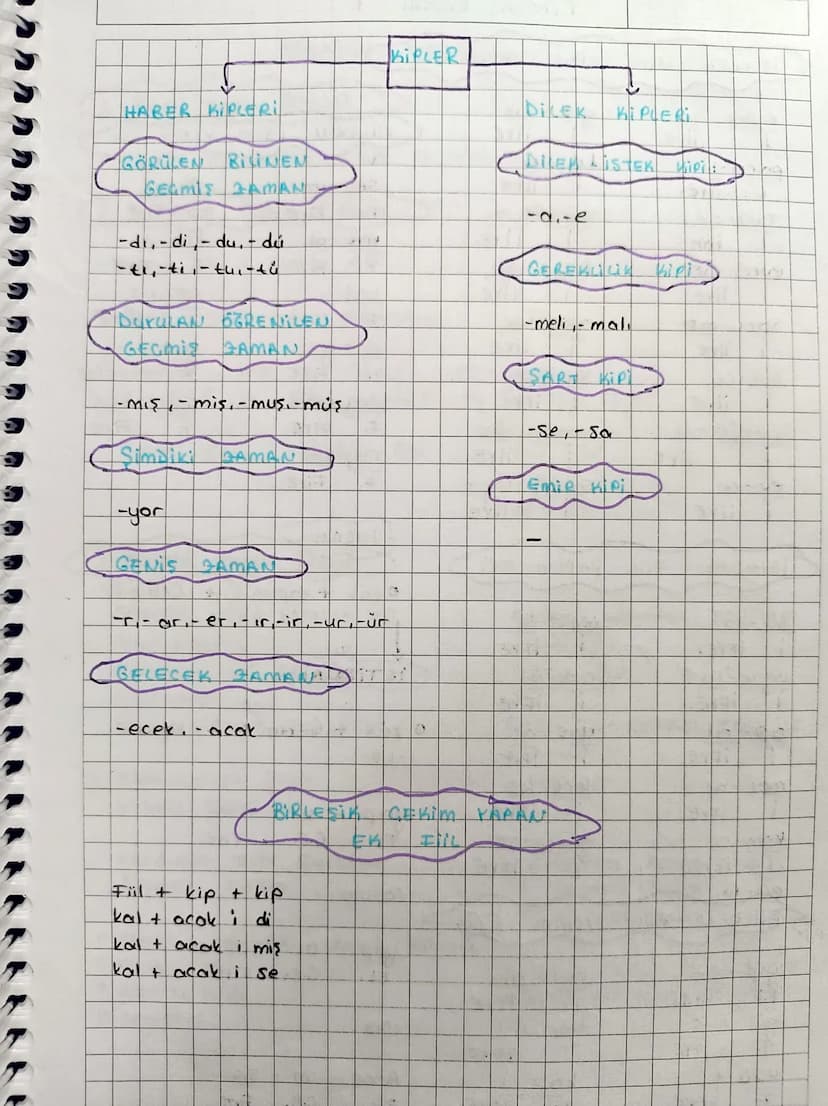 KİPLER
HABER KİPLERİ
GÖRÜLEN BİLİNEN
GEÇMİŞ ZAMAN
-dı,-di,-du,-dü
-tı,-ti,-tu,-tü
DUYULAN ÖĞRENİLEN
GEÇMİŞ ZAMAN
-mış,-miş,-muş,-müş
ŞİMDİKİ ZAMAN
-yor
GENİŞ ZAMAN
-r,-ar,-er,-ır,-ir,-ur,-ür
GELECEK ZAMAN
-ecek,-acak
DİLEK KİPLERİ
DİLEK-İSTEK KİPİ:
-a,-e
GEREKLİLİK KİPİ
-meli,-malı
ŞART KİPİ
-se,-sa
EMİR KİPİ
-
BİRLEŞİK ÇEKİM YAPAN
EK FİİL
Fiil + kip + kip
kal + acak i di
kal + acak i miş
kal + acak i se